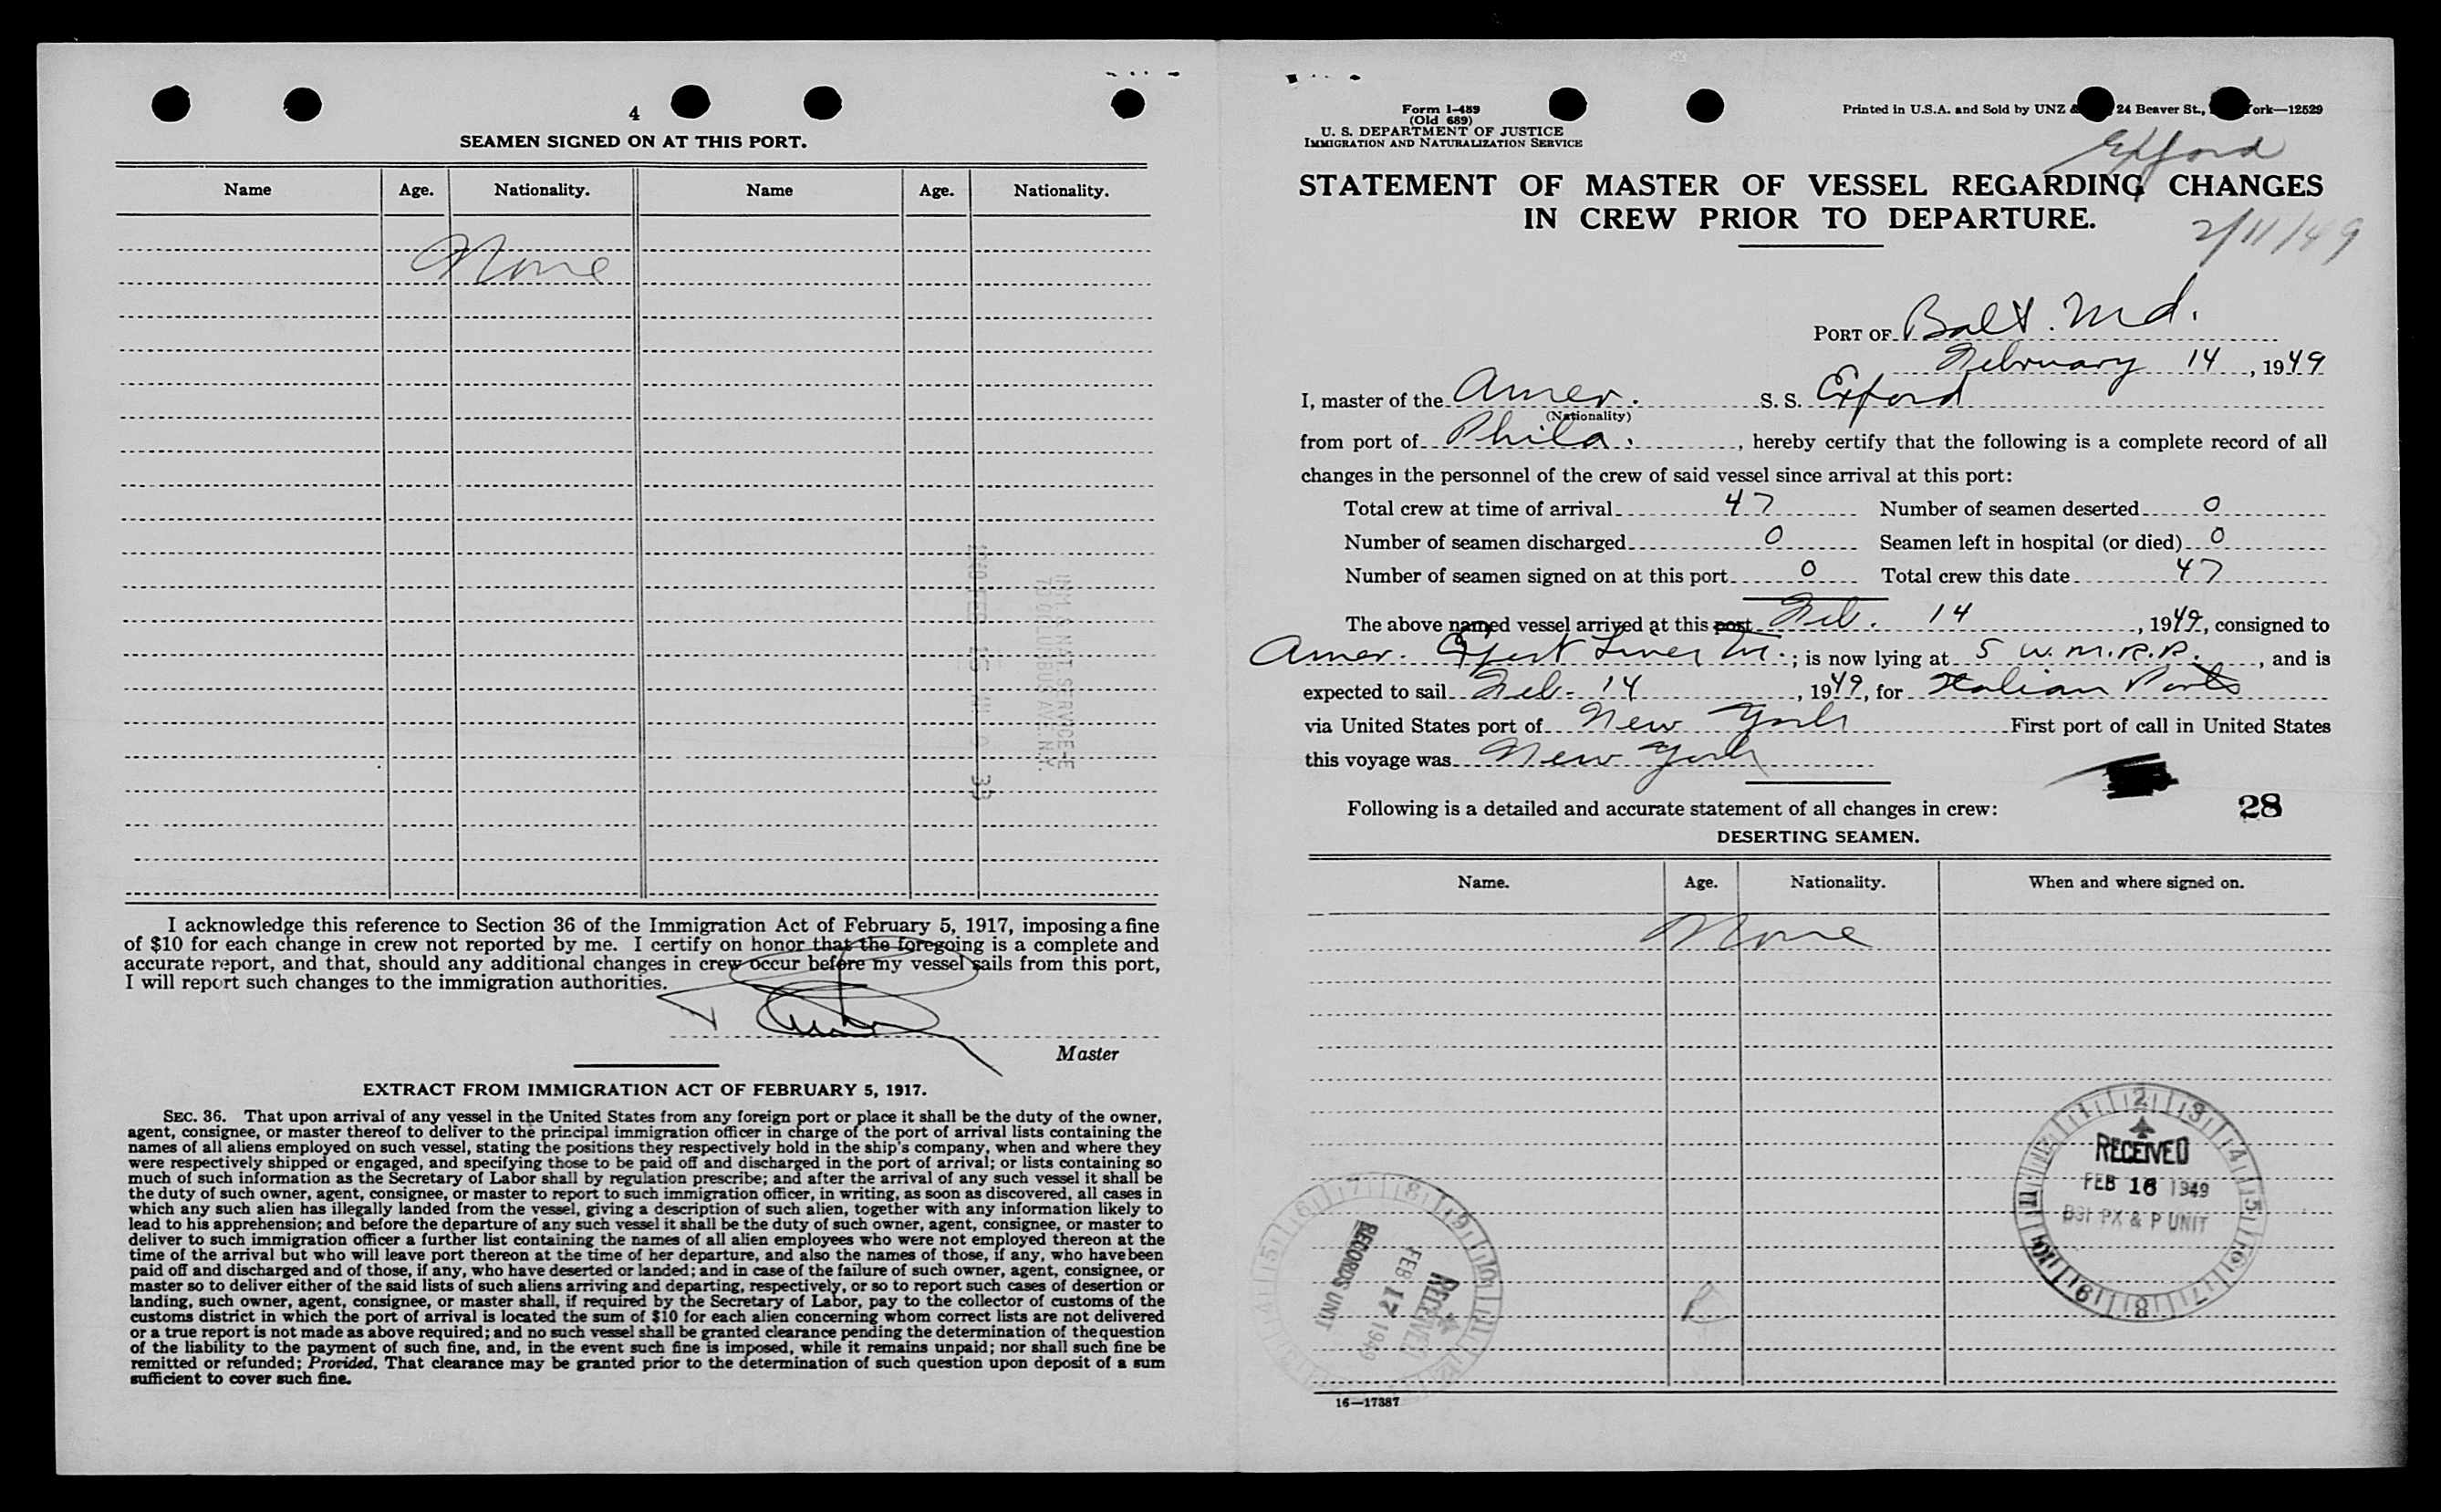 4
SEAMEN SIGNED ON AT THIS PORT.
Name Age. Nationality. Name Age. Nationality.
None
I acknowledge this reference to Section 36 of the Immigration Act of February 5, 1917, imposing a fine
of $10 for each change in crew not reported by me. I certify on honor that the foregoing is a complete and
accurate report, and that, should any additional changes in crew occur before my vessel sails from this port,
I will report such changes to the immigration authorities.
Master
EXTRACT FROM IMMIGRATION ACT OF FEBRUARY 5, 1917.
SEC. 36. That upon arrival of any vessel in the United States from any foreign port or place it shall be the duty of the owner,
agent, consignee, or master thereof to deliver to the principal immigration officer in charge of the port of arrival lists containing the
names of all aliens employed on such vessel, stating the positions they respectively hold in the ship's company, when and where they
were respectively shipped or engaged, and specifying those to be paid off and discharged in the port of arrival; or lists containing so
much of such information as the Secretary of Labor shall by regulation prescribe; and after the arrival of any such vessel it shall be
the duty of such owner, agent, consignee, or master to report to such immigration officer, in writing, as soon as discovered, all cases in
which any such alien has illegally landed from the vessel, giving a description of such alien, together with any information likely to
lead to his apprehension; and before the departure of any such vessel it shall be the duty of such owner, agent, consignee, or master to
deliver to such immigration officer a further list containing the names of all alien employees who were not employed thereon at the
time of the arrival but who will leave port thereon at the time of her departure, and also the names of those, if any, who have been
paid off and discharged and of those, if any, who have deserted or landed; and in case of the failure of such owner, agent, consignee, or
master so to deliver either of the said lists of such aliens arriving and departing, respectively, or so to report such cases of desertion or
landing, such owner, agent, consignee, or master shall, if required by the Secretary of Labor, pay to the collector of customs of the
customs district in which the port of arrival is located the sum of $10 for each alien concerning whom correct lists are not delivered
or a true report is not made as above required; and no such vessel shall be granted clearance pending the determination of the question
of the liability to the payment of such fine, and, in the event such fine is imposed, while it remains unpaid; nor shall such fine be
remitted or refunded; Provided, That clearance may be granted prior to the determination of such question upon deposit of a sum
sufficient to cover such fine.
Form I-489
(Old 689)
U. S. DEPARTMENT OF JUSTICE
IMMIGRATION AND NATURALIZATION SERVICE
Printed in U.S.A. and Sold by UNZ & 24 Beaver St., ork—12529
Exford
STATEMENT OF MASTER OF VESSEL REGARDING CHANGES
IN CREW PRIOR TO DEPARTURE.
2/11/49
PORT OF Balt. Md.
February 14, 1949
I, master of the Amer. S. S. Exford
(Nationality)
from port of Phila., hereby certify that the following is a complete record of all
changes in the personnel of the crew of said vessel since arrival at this port:
Total crew at time of arrival 47 Number of seamen deserted 0
Number of seamen discharged 0 Seamen left in hospital (or died) 0
Number of seamen signed on at this port 0 Total crew this date 47
The above named vessel arrived at this port Feb. 14, 1949, consigned to
Amer. Export Lines Inc.; is now lying at 5 W.M.R.R., and is
expected to sail Feb- 14, 1949, for Italian Ports
via United States port of New York First port of call in United States
this voyage was New York
28
Following is a detailed and accurate statement of all changes in crew:
DESERTING SEAMEN.
Name. Age. Nationality. When and where signed on.
None
RECEIVED
FEB 16 1949
BSI PX & P UNIT
RECEIVED
FEB 17 1949
RECORDS UNIT
16—17387